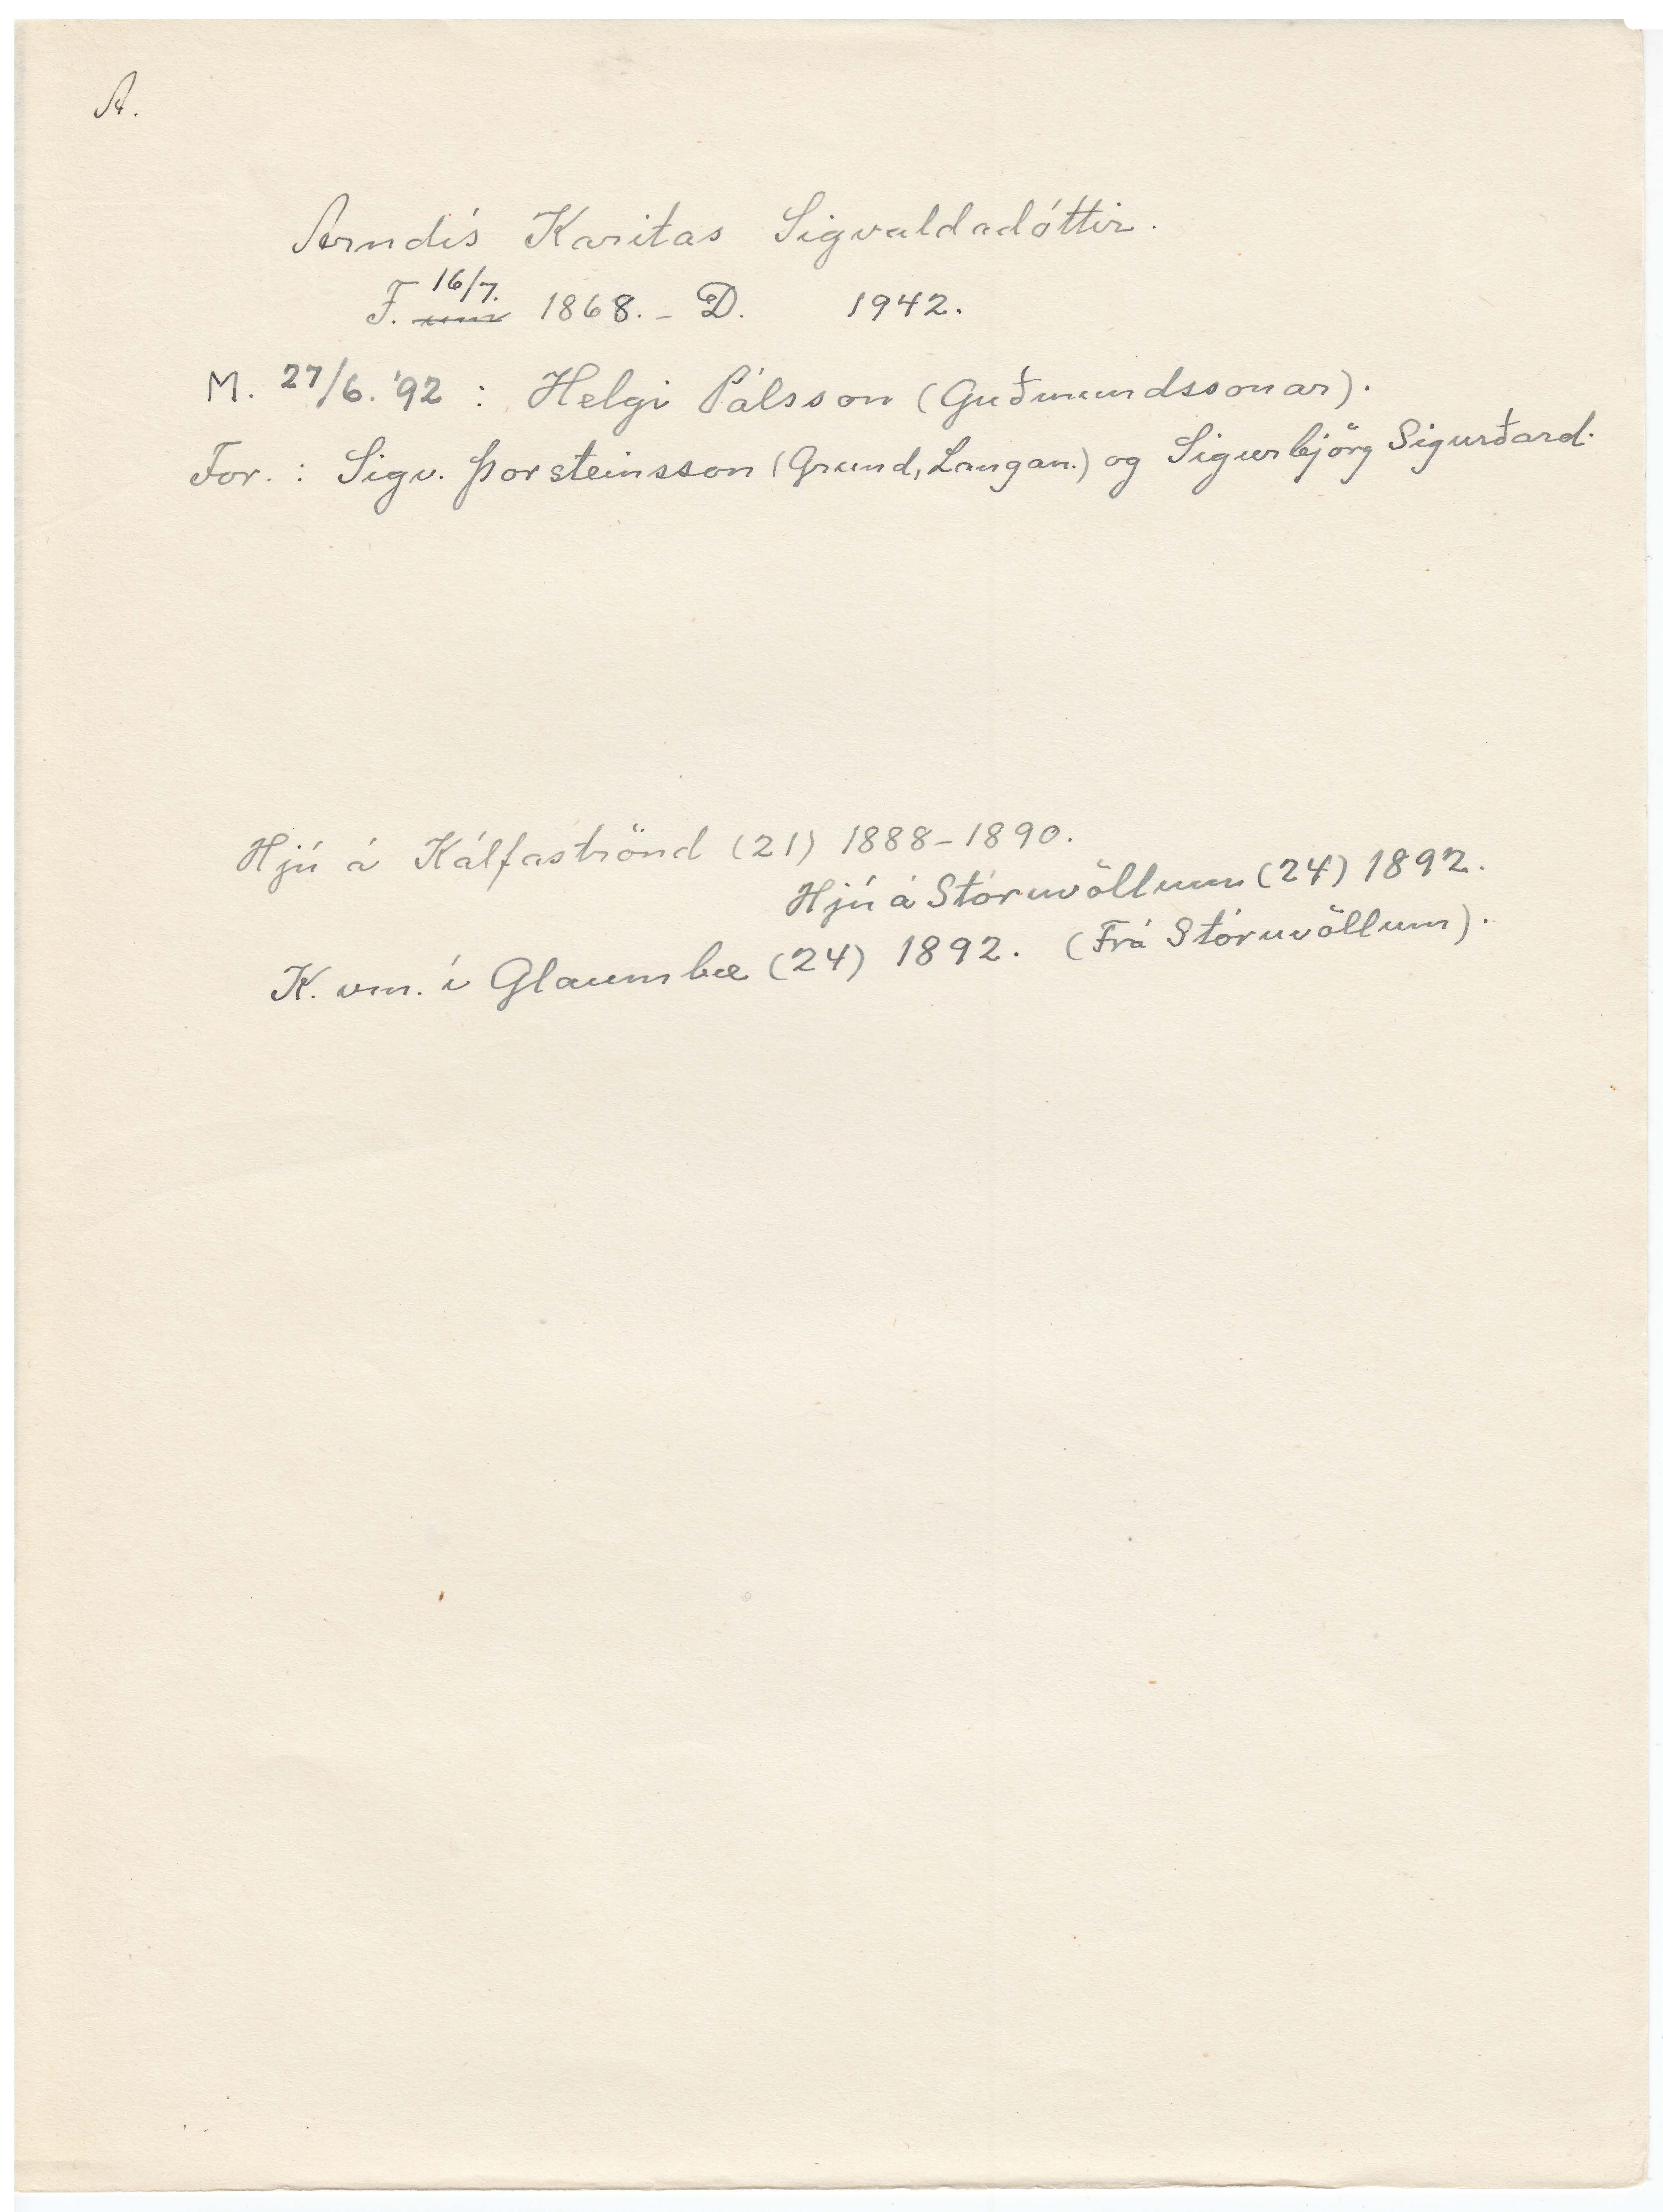 A.
Arndís Karitas Sigvaldadóttir.
F. 16/7. um 1868. - D. 1942.
M. 27/6. '92 : Helgi Pálsson (Guðmundssonar).
For. : Sigv. Þorsteinsson (Grund, Langan.) og Sigurbjörg Sigurðard.
Hjú á Kálfaströnd (21) 1888-1890.
Hjú á Stóruvöllum (24) 1892.
K. vm. í Glaumbæ (24) 1892. (Frá Stóruvöllum).